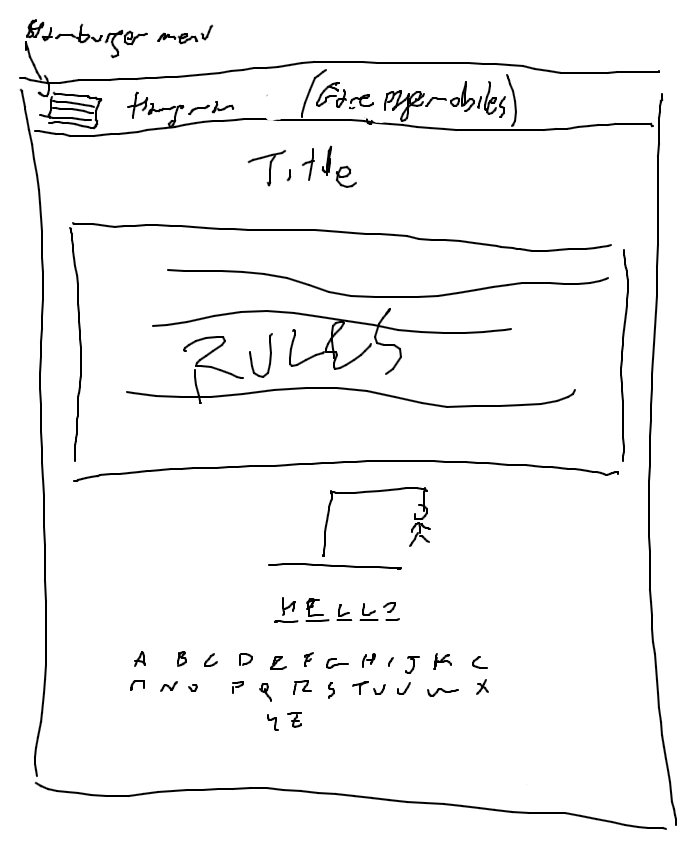 Hamburger menu
Hangman
Title
RULES
HELLO
A B C D E F G H I J K L
M N O P Q R S T U V W X
Y Z